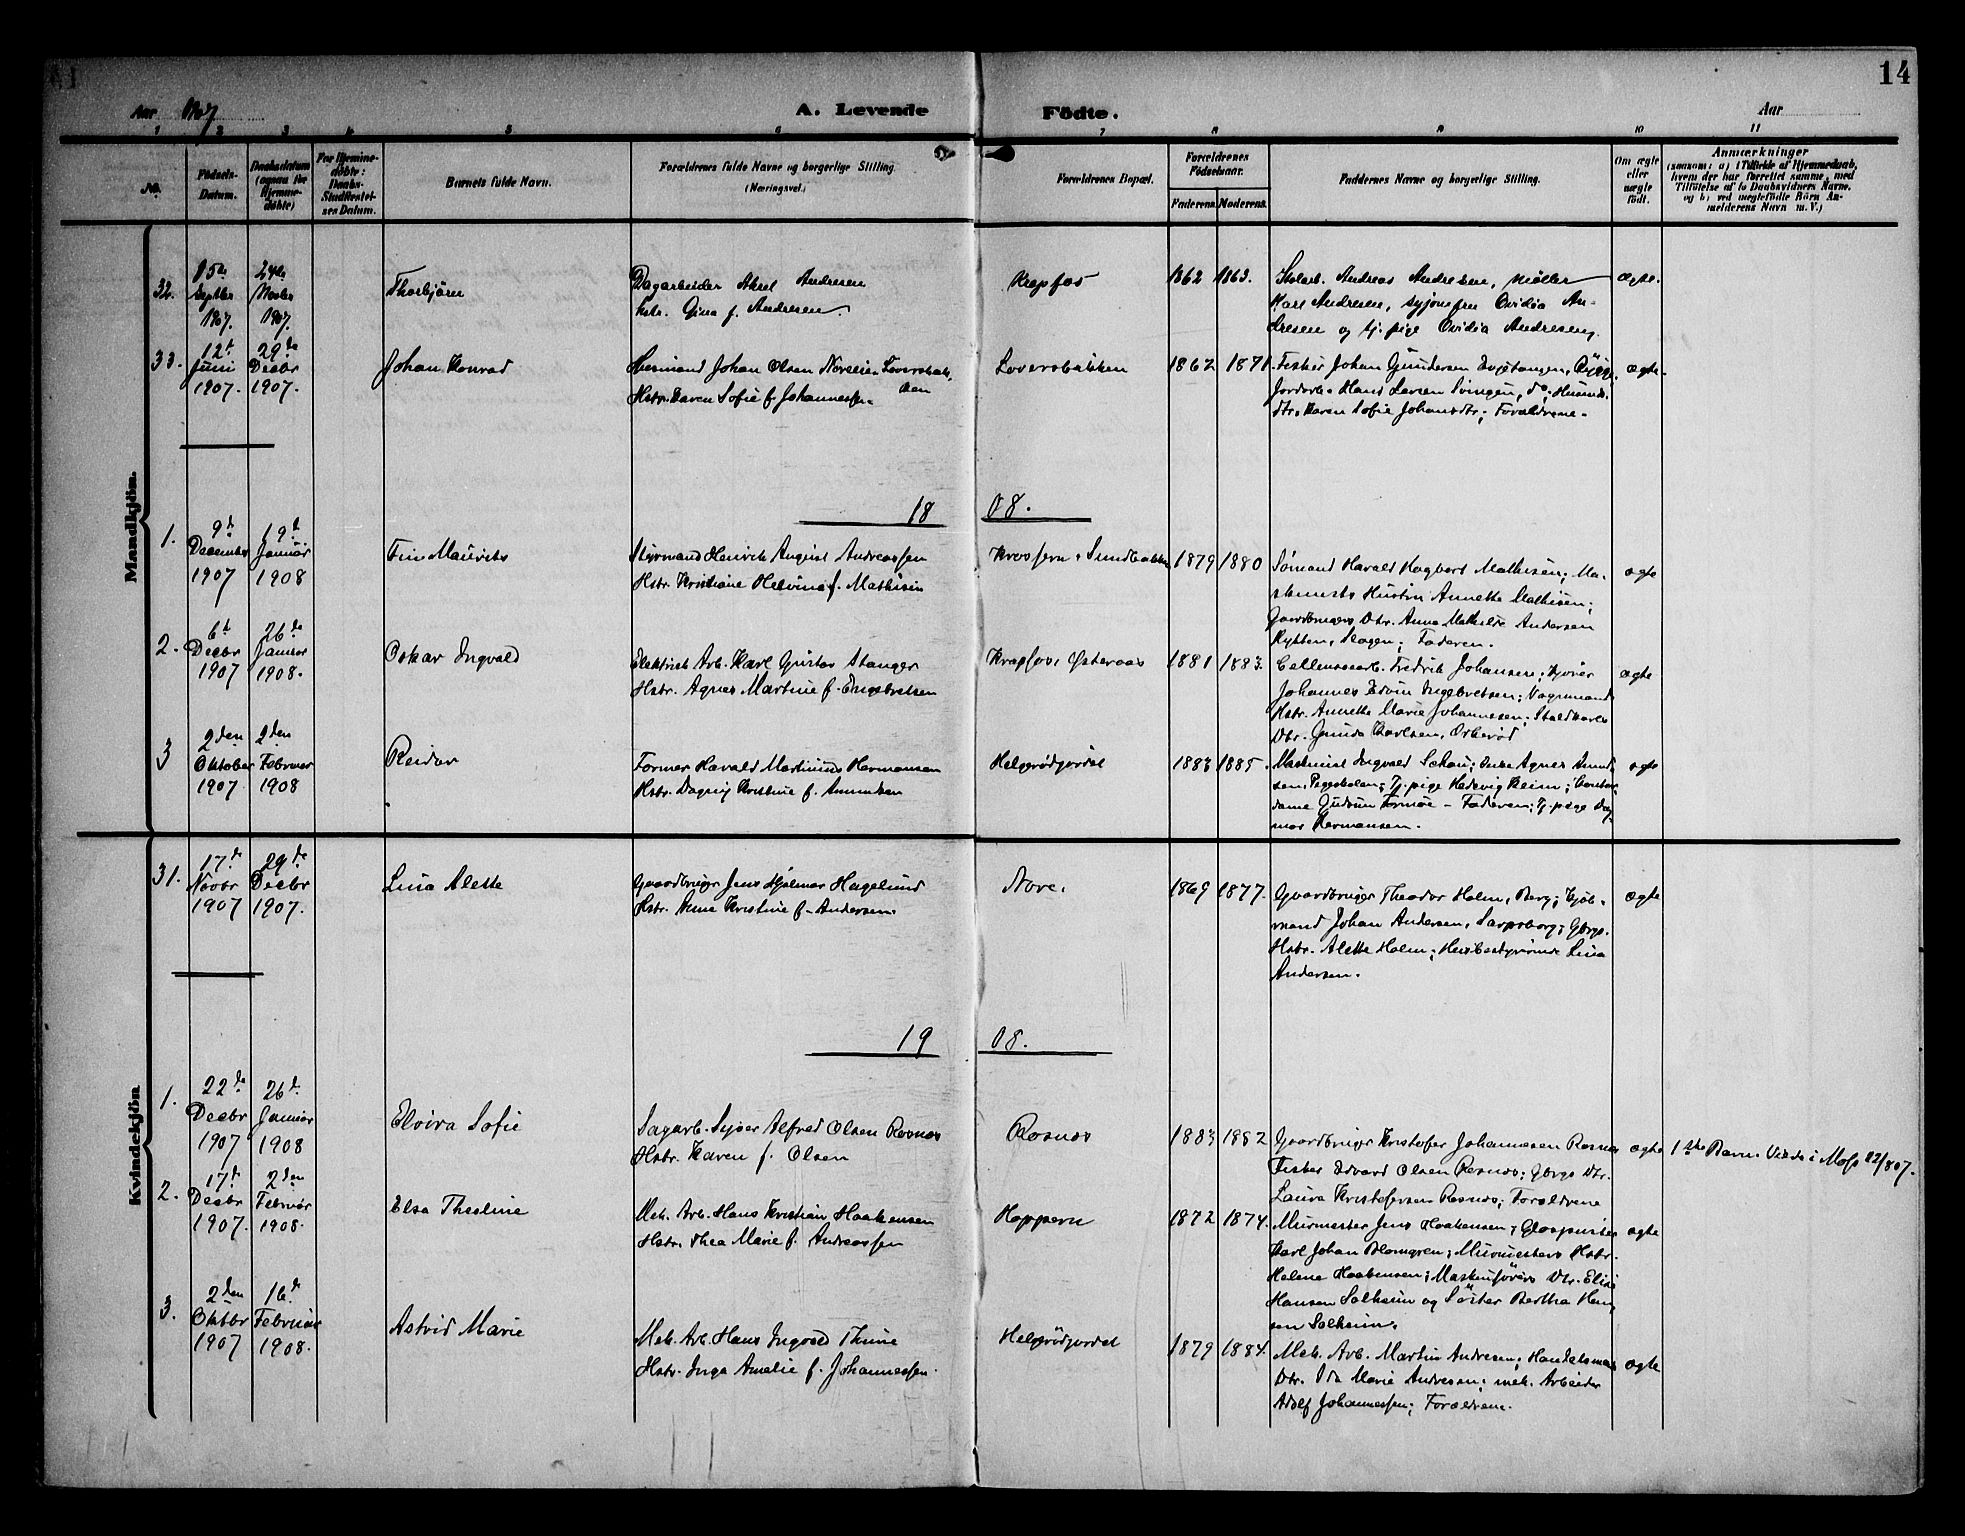 14
Aar 1907
A. Levende
Födte.
Aar
1 2 3 4 5 6 7 8 9 10 11
No.
Födsels-
Datum.
Daabsdatum
(ogsaa for
Hjemme-
døbte)
For Hjemme-
døbte:
Daabs-
Stadfæstel-
ses Datum.
Barnets fulde Navn.
Forældrenes fulde Navne og borgerlige Stilling
(Næringsvei.)
Forældrenes Bopæl.
Forældrenes
Födselsaar.
Faderens.
Moderens.
Faddernes Navne og borgerlige Stilling.
Om ægte
eller
uægte
födt.
Anmærkninger
(saasom: a) i Tilfælde af Hjemmedaab,
hvem der har forrettet samme, med
Tilföielse af to Daabsvidners Navne.
og b) ved uægtefödte Börn An-
melderens Navn m. V.)
Mandkjön.
32.
15de
Septbr
1907.
24de
Novbr
1907.
Thorbjörn
Dagarbeider Aksel Andresen
Hstr. Gina f. Andresen.
Krapfos
1862 1863.
Andreas Andresen, Møller
Karl Andresen, syjomfru Ovidia An-
dresen og tj. pige Ovidia Andresen.
ægte.
33.
12te
Juni
1907.
29de
Decbr
1907.
Johan Konrad
Husmand Johan Olsen
Hstr. Karen Sofie f. Johannessen
Loversbakken
1862 1871.
Fisker Johan Gundersen
Jordarb. Hans Larsen Svingen, do, Husmds.
dtr. Karen Sofie Johansdtr; Forældrene.
ægte.
18 08.
1.
9de
December
1907
19de
Januar
1908
Finn Maurits
Styrmand Henrik August Andreassen
Hstr. Kristiane Helvine f. Mathisen
Krossern, Sundbakken
1879 1880
Sømand Harald Hagbart Mathisen; Ma-
skinists Hustru Annette Mathisen;
Gaardbrugers Dtr. Anna Mathilde Andersen
Rytten, Slagen; Faderen.
ægte
2.
6te
Decbr
1907
26de
Januar
1908.
Oskar Ingvald
Elektrisk Arb. Karl Gustav Stanger
Hstr. Agnes Martine f. Engebretsen
Krapfos, Østeraas
1881 1883.
Cellulosearb. Fredrik Johansen; Kjører
Johannes Edvin Ingebretsen; Vognmand
Hstr. Annette Marie Johannesen; Staldkarls
Dtr. Gunda Karlsen, Orkerød
ægte
3
2den
Oktober
1907
2den
Februar
1908
Reidar
Former Harald Martinius Hermansen
Hstr. Dagny Kristine f. Amundsen
Helgerødjordet
1883 1885.
Maskinist Ingvald Schau; Enke Agnes Amund-
sen, Peggeskolen; Tj. pige Hedevig Reim; Contor-
dame Gudrun Formoe - Faderen; Tj. pige Dag-
mar Hermansen.
ægte
Kvindekjön
31.
17de
Novbr
1907
29de
Decbr
1907.
Lina Alette
Gaardbruger Jens Hjalmar Hagelund
Hstr. Anne Kristine f. Andersen.
Nore.
1869 1877.
Gaardbruger Theodor Holm, Berg; Kjöb-
mand Johan Andersen, Sarpsborg; Gbrgs.
Hstr. Alette Holm; Husbestyrerinde Lina
Andersen.
ægte
19 08.
1.
22de
Decbr
1907
26de
Januar
1908
Elvira Sofie
Sagarb. Syver Alfred Olsen Rosnæs
Hstr. Karen f. Olsen
Rosnæs
1883 1882
Gaardbruger Kristofer Johannesen Rosnæs
Fisker Edvard Olsen Rosnæs; Gbrgs Dtr.
Laura Kristofersen Rosnæs; Forældrene
ægte
1ste Barn. Viede i Moss 22/8 07.
2.
17de
Decbr
1907.
2den
Februar
1908.
Elsa Theoline
Mek. Arb. Hans Kristian Haakensen
Hstr. Thea Marie f. Andreassen
Hoppern
1872 1874.
Murmester Jens Haakensen; Glaspuster
Karl Johan Blomgren; Murmesters Hstr.
Helene Haakensen; Maskinførers Dtr. Elise
Hansen Solheim og Söster Bertha Han-
sen Solheim.
ægte
3.
2den
Oktbr
1907
16de
Februar
1908.
Astrid Marie
Mek. Arb. Hans Ingvald Thune
Hstr. Inga Amalie f. Johannessen.
Helgerödjordet
1879 1884.
Mek. Arb. Martin Andresen; Handelsmas
Dtr. Ida Marie Andresen; mek. Arbeider
Adolf Johannessen; Forældrene.
ægte